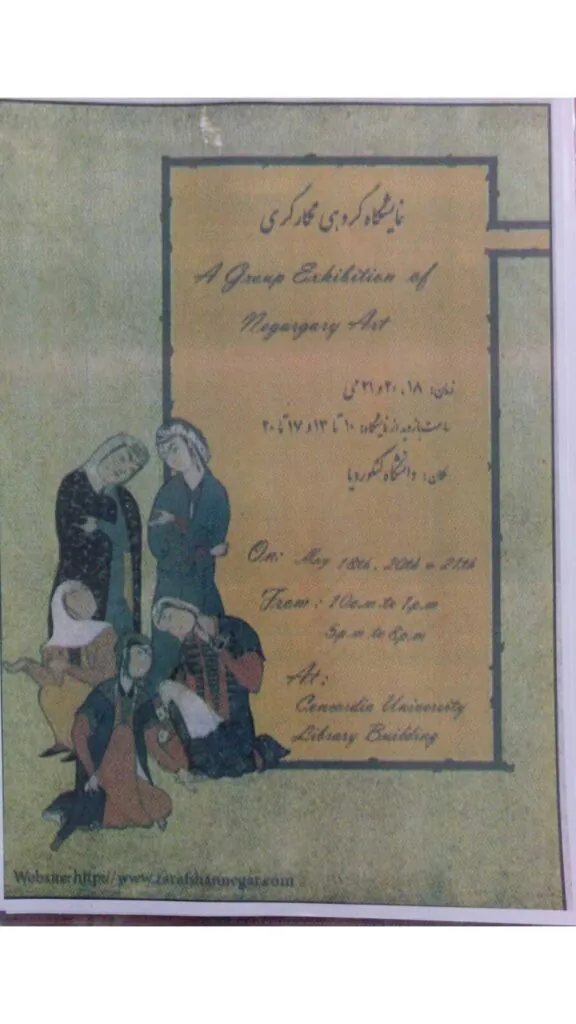 نمایشگاه گروهی نگارگری
A Group Exhibition of
Negargary Art
زمان: ۱۸، ۲۰ و ۲۱ می
ساعت بازدید از نمایشگاه: ۱۰ تا ۱۳ و ۱۷ تا ۲۰
مکان: دانشگاه کنکوردیا
On: May 18th, 20th & 21th
From: 10a.m to 1p.m
5p.m to 8p.m
At:
Concordia University
Library Building
Website:http://www.zarafshannegar.com